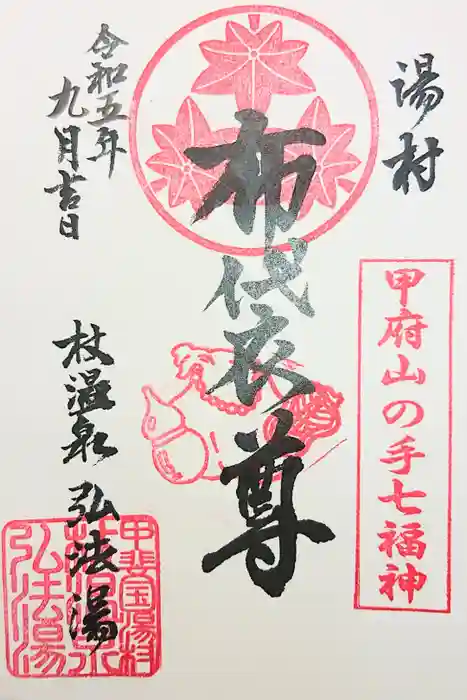 湯村
甲府山の手七福神
布袋尊
令和五年
九月吉日
杖温泉 弘法湯
甲斐国湯村
杖温泉
弘法湯